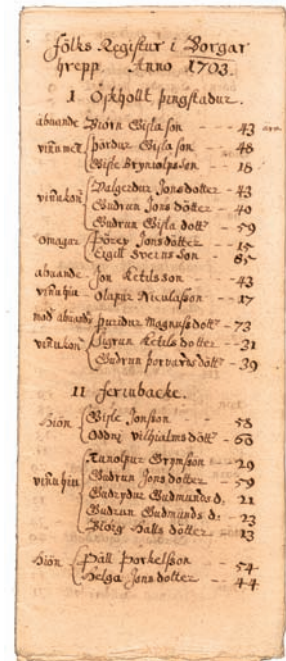 fölks Registur i Borgar
hrepp. Anno 1703.
I Öskhollt þingstadur.
abuande Biörn Gisla son - - - 43 ara
vinumeñ Þördur Gisla son - - 48
Gisle Bryniolpsson - - 18
vinukoñ Valgerdur Jonsdotter - 43
Gudrun Jons dotter - - 40
Gudrun Gisla dottr - - 59
omagar Þörey Jonsdötter - - 15
Eigill Sverns Son - - 65
abuande Jon Ketilsson - - - 43
vinuhiu Olapur Niculasson - - 17
mod abuands Þuridur Magnussdott - 73
vinukoñ Sigrun Ketils dotter - - 31
Gudrun Þorvards dött - 39
II feriubacke.
hiön Gisle Jonsson - - 58
Oddni vilhialmsdött - 60
vinuhiu Runolpur Grymsson - - 29
Gudrun Jons dotter - - 59
Gudrydur Gudmunds d. - 21
Gudrun Gudmunds d. - 23
Biörg Halls dötter - - 13
hiön Päll Þorkelsson - - 54
Helga Jons dotter - - 44